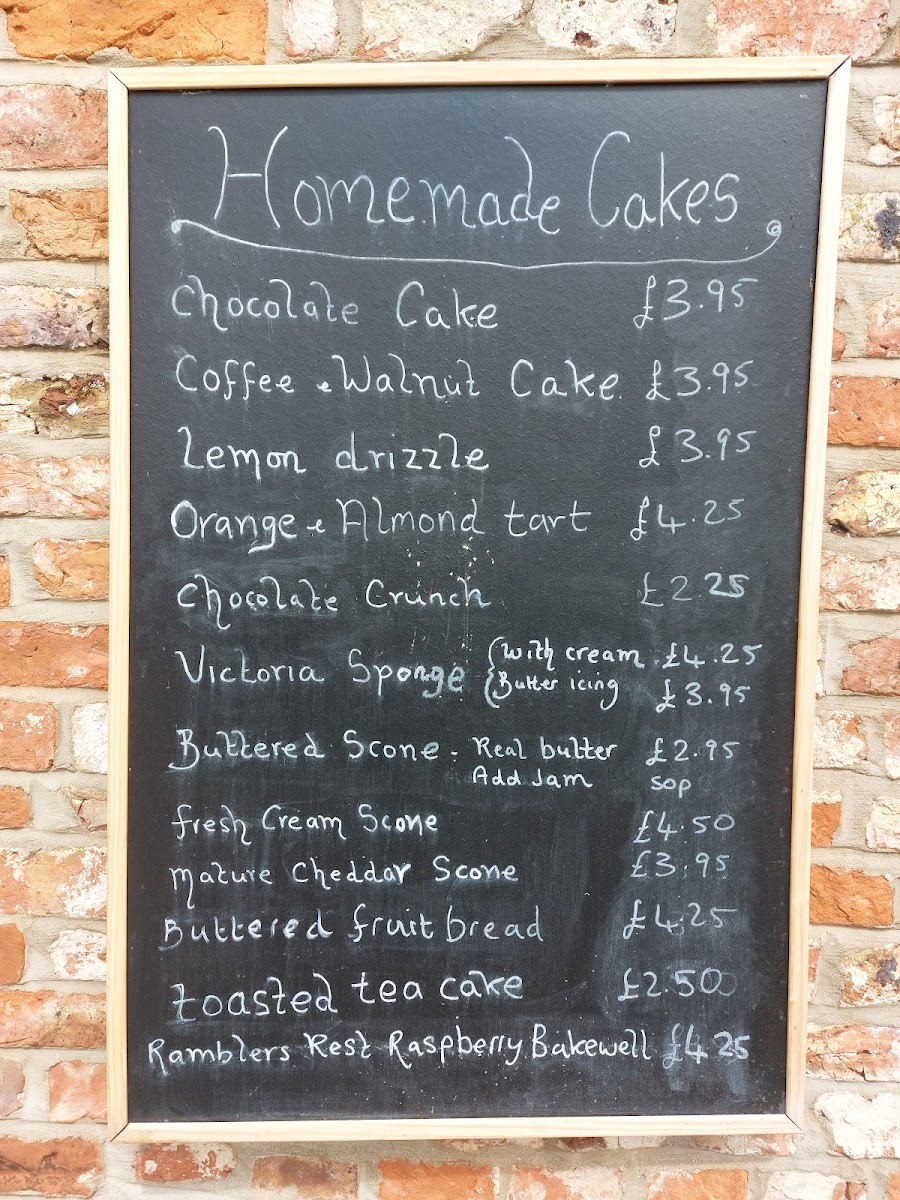 Homemade Cakes
Chocolate Cake £3.95
Coffee & Walnut Cake £3.95
Lemon drizzle £3.95
Orange & Almond tart £4.25
Chocolate Crunch £2.25
Victoria Sponge { With cream £4.25
{ Butter icing £3.95
Buttered Scone - Real butter £2.95
Add Jam 50p
fresh Cream Scone £4.50
Mature Cheddar Scone £3.95
Buttered fruit bread £4.25
toasted tea cake £2.50
Ramblers Rest Raspberry Bakewell £4.25